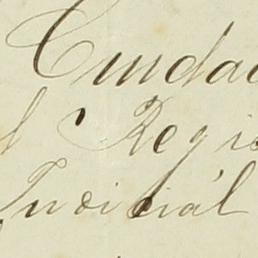 Ciudad
l Regis
Judicial